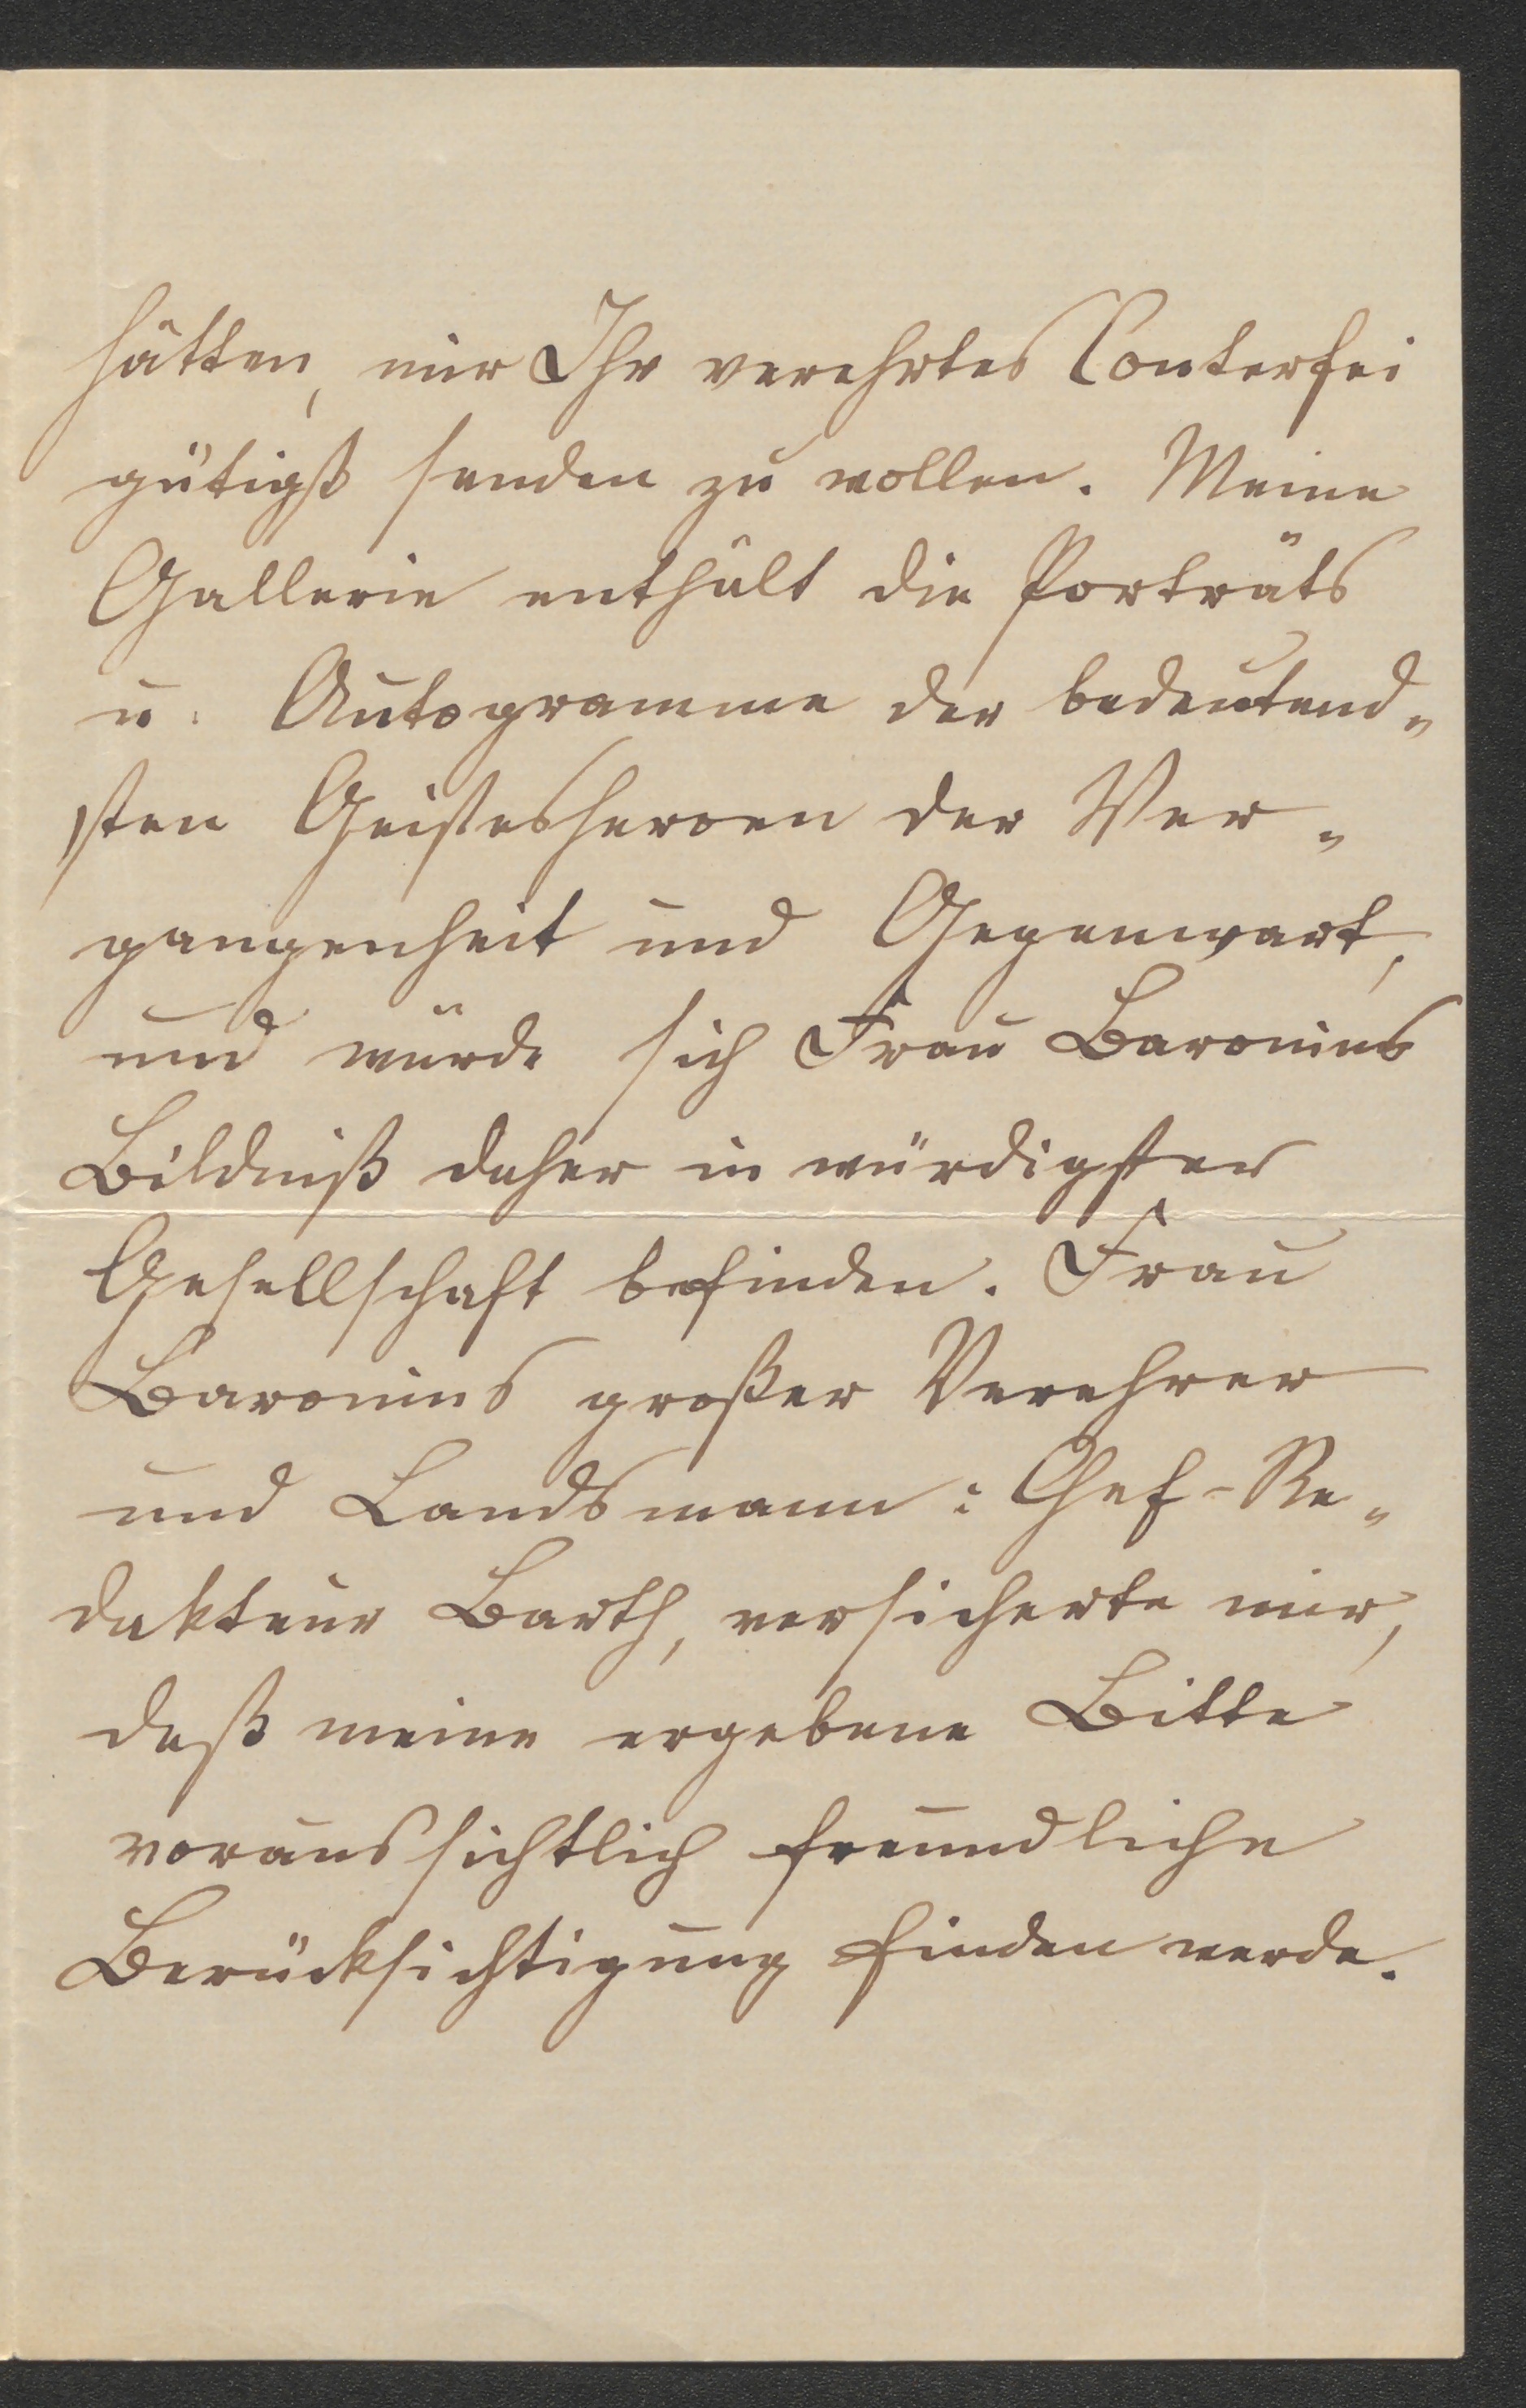 hätten, mir Ihr verehrtes Conterfei
gütigst senden zu wollen. Meine
Gallerie enthält die Porträts
u. Autogramme der bedeutend„
sten Geistesheroen der Ver„
gangenheit und Gegenwart,
und würde sich Frau Baronins
Bildniß daher in würdigster
Gesellschaft befinden. Frau
Baronins großer Verehrer
und Landsmann: Chef-Re„
dakteur Barth, versicherte mir,
daß meine ergebene Bitte
voraussichtlich freundliche
Berücksichtigung finden werde.